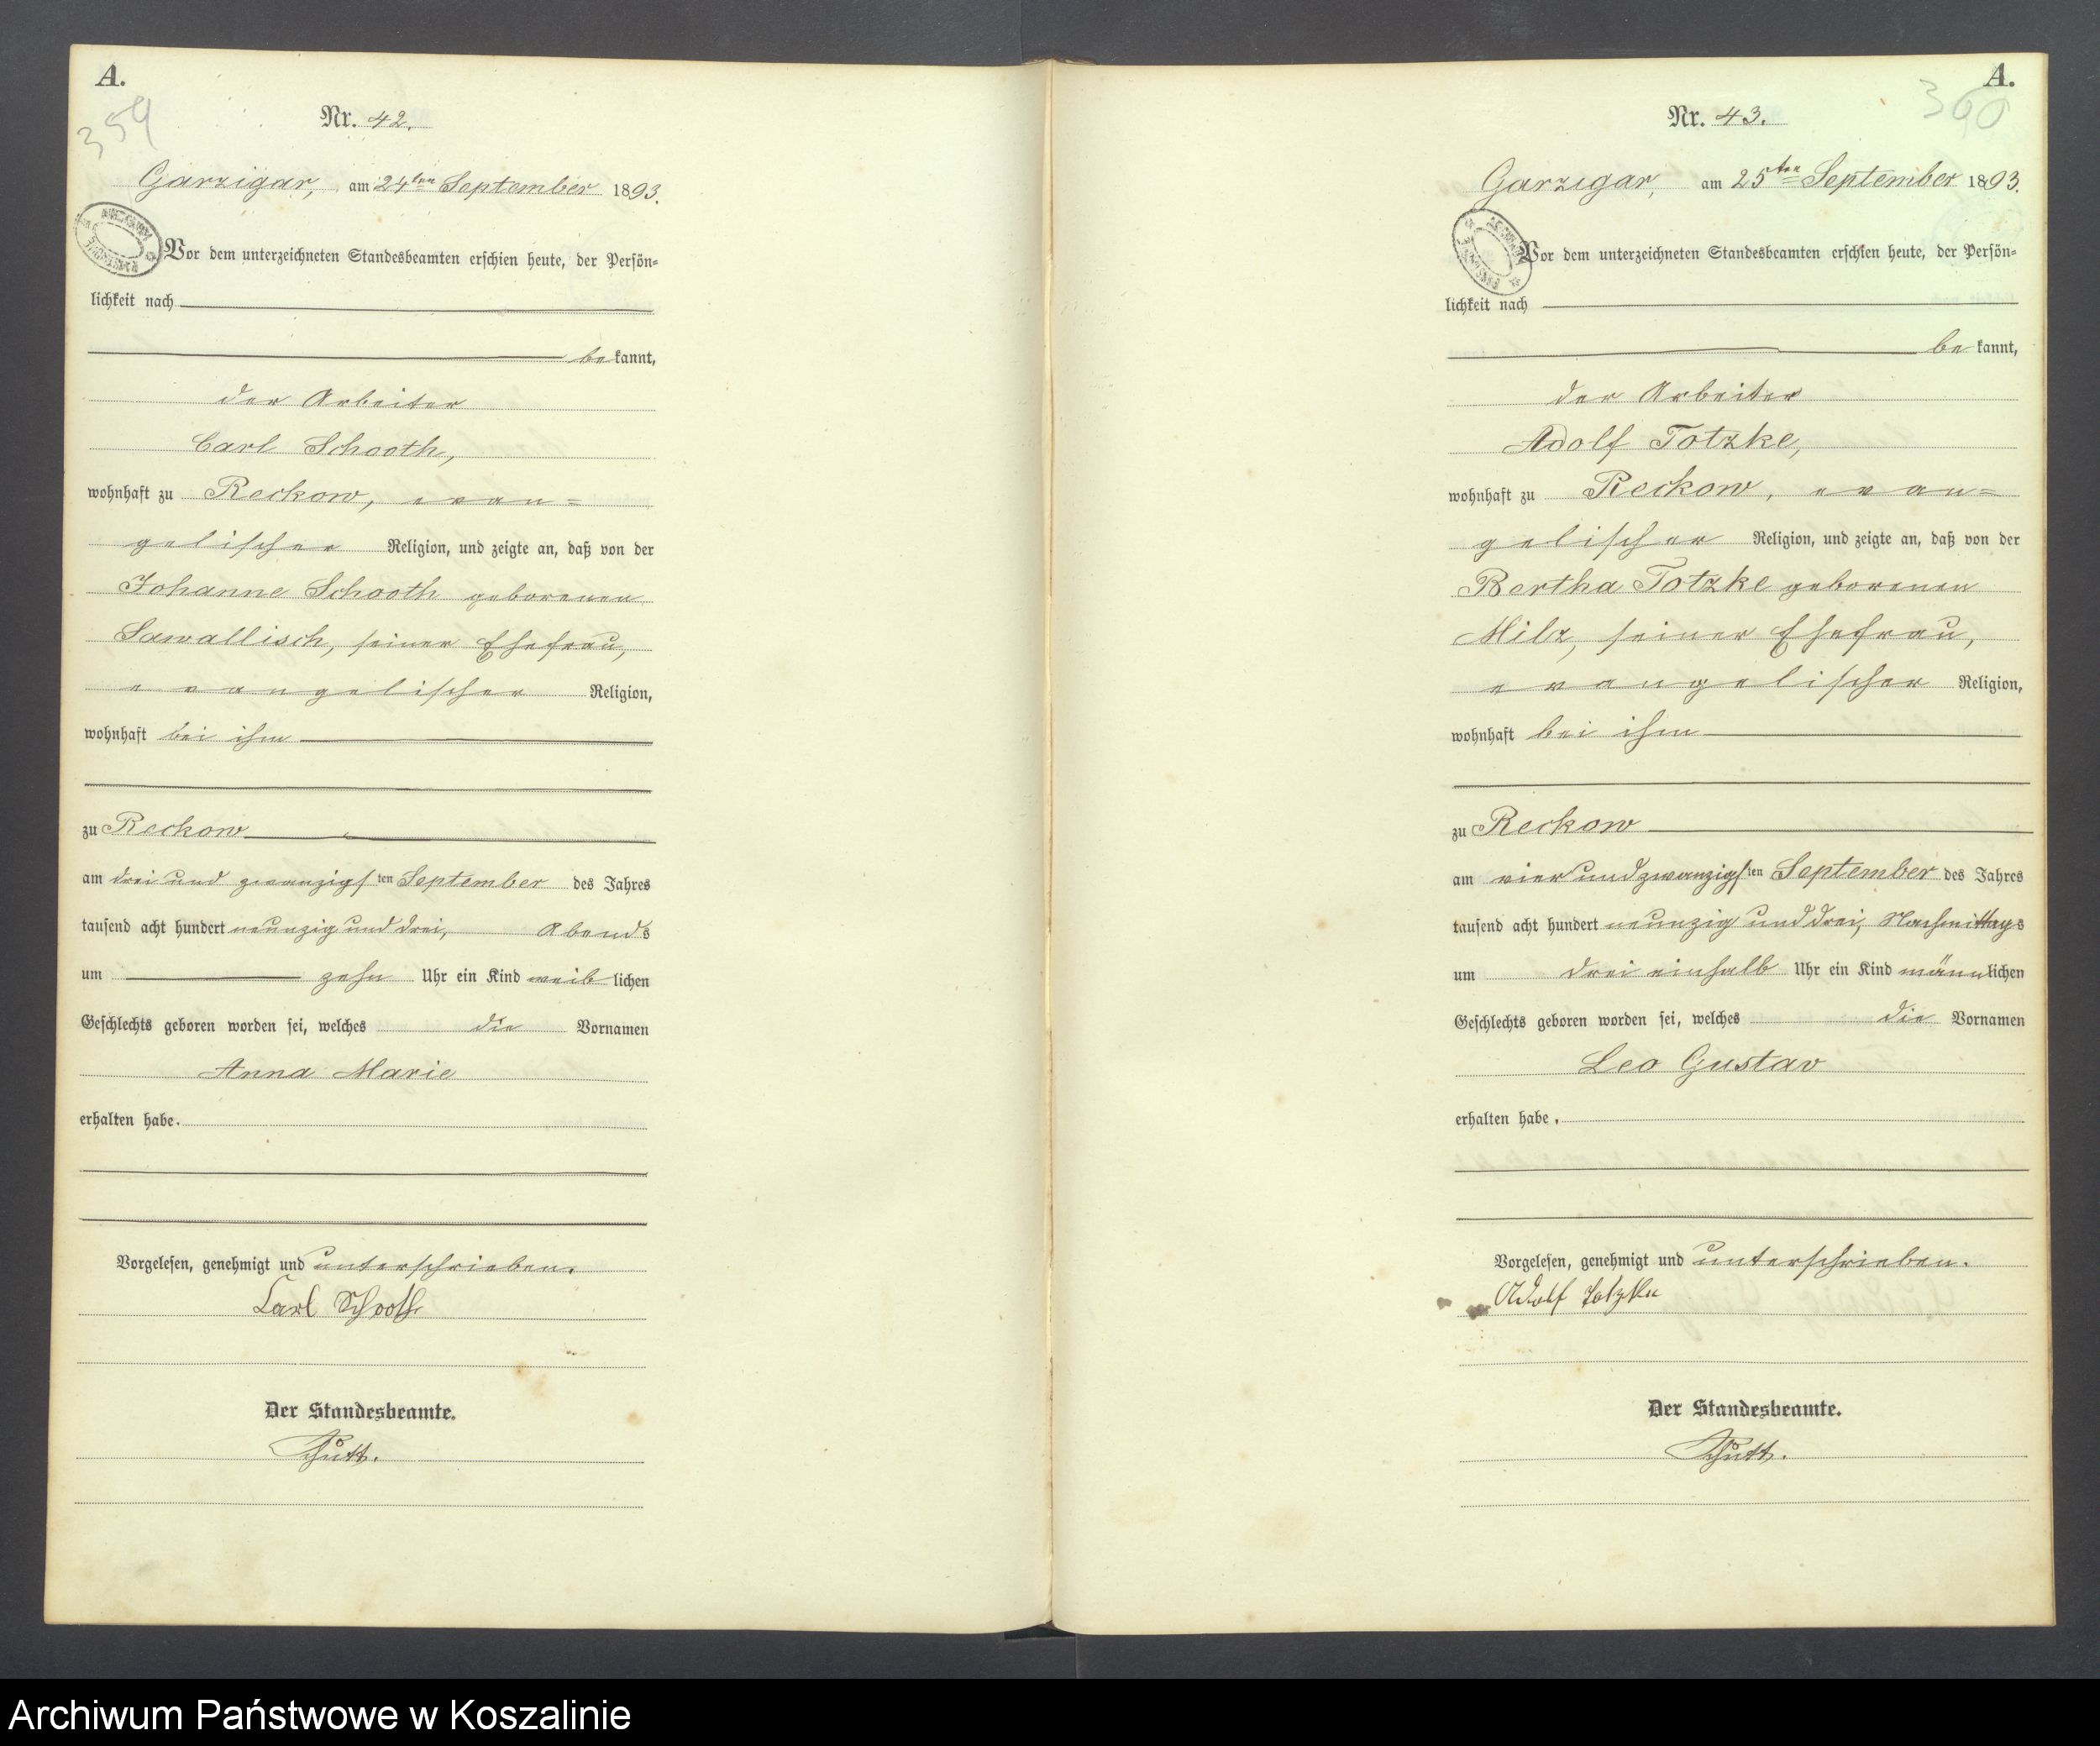 A.
359
Nr. 42.
Garzigar, am 24ten September 1893.
Vor dem unterzeichneten Standesbeamten erschien heute, der Persön=
lichkeit nach
bekannt,
der Arbeiter
Carl Schooth,
wohnhaft zu Reckow, evan=
gelischer Religion, und zeigte an, daß von der
Johanne Schooth geborenen
Sawallisch, seiner Ehefrau,
evangelischer Religion,
wohnhaft bei ihm
zu Reckow
am drei und zwanzigsten September des Jahres
tausend acht hundert neunzig und drei, Abends
um zehn Uhr ein Kind weiblichen
Geschlechts geboren worden sei, welches die Vornamen
Anna Marie
erhalten habe.
Vorgelesen, genehmigt und unterschrieben.
Carl Schooth
Der Standesbeamte.
A.
360
Nr. 43.
Garzigar, am 25ten September 1893.
Vor dem unterzeichneten Standesbeamten erschien heute, der Persön=
lichkeit nach
bekannt,
der Arbeiter
Adolf Totzke,
wohnhaft zu Reckow, evan=
gelischer Religion, und zeigte an, daß von der
Bertha Totzke geborenen
Milz, seiner Ehefrau,
evangelischer Religion,
wohnhaft bei ihm
zu Reckow
am vier und zwanzigsten September des Jahres
tausend acht hundert neunzig und drei, Nachmittags
um drei einhalb Uhr ein Kind männlichen
Geschlechts geboren worden sei, welches die Vornamen
Leo Gustav
erhalten habe.
Vorgelesen, genehmigt und unterschrieben.
Adolf Totzke
Der Standesbeamte.
Archiwum Państwowe w Koszalinie